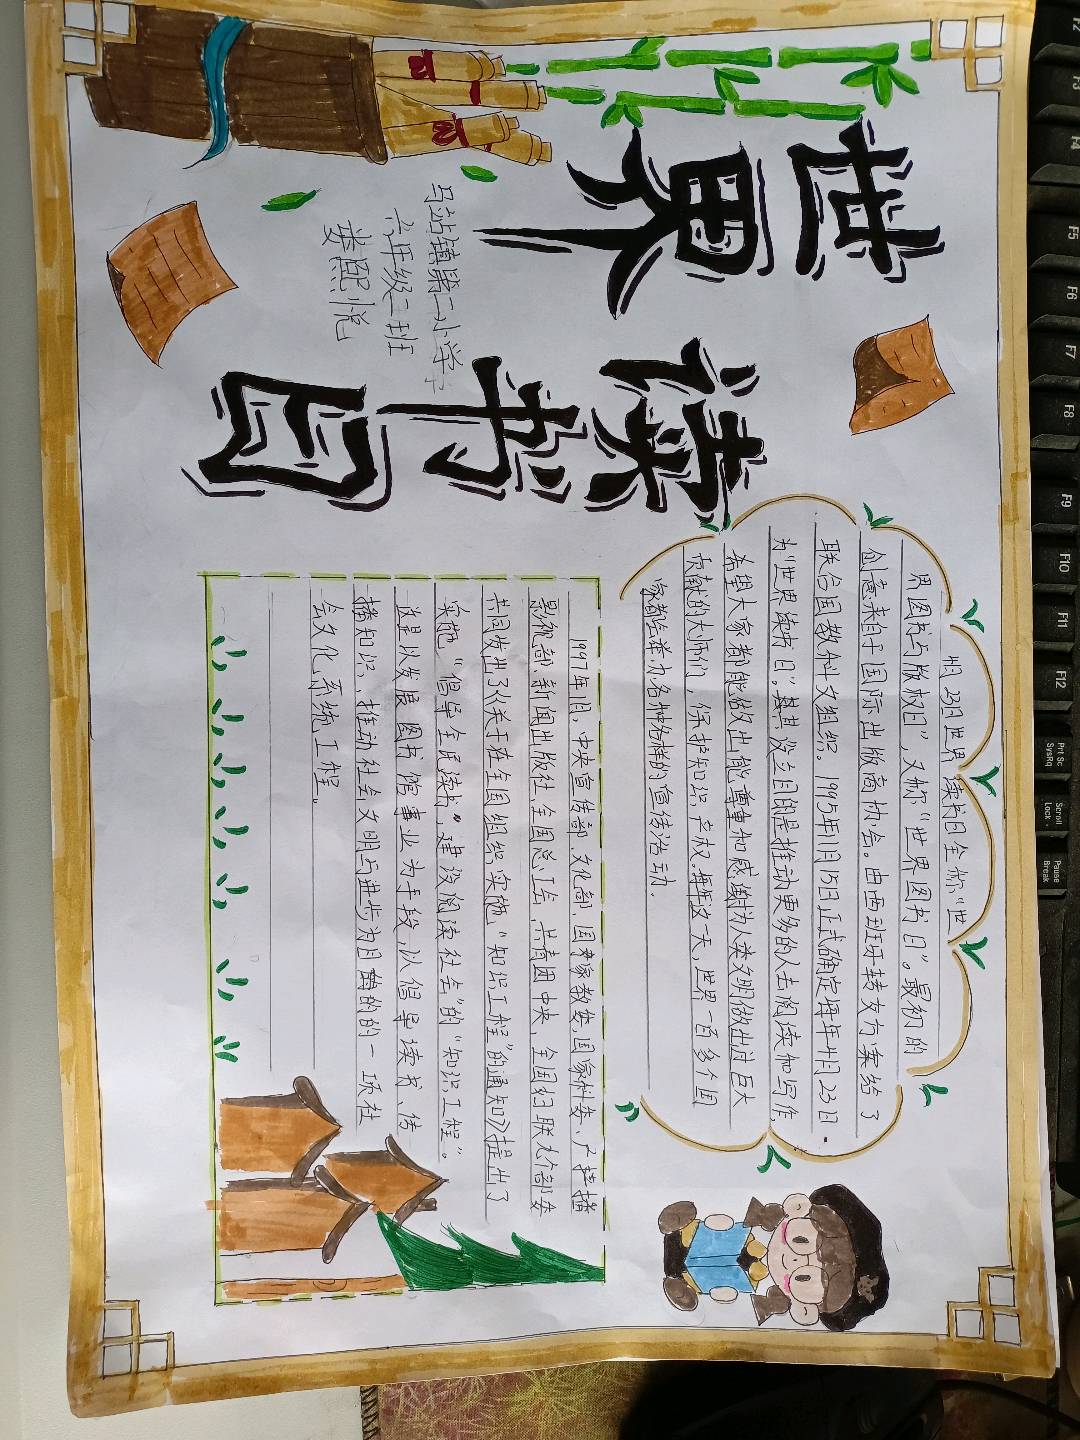 世界
读书日
马站镇第二小学
六年级二班
娄熙悦
4月23日世界读书日全称“世
界图书与版权日”，又称“世界图书日”。最初的
创意来自于国际出版商协会。由西班牙转交方案给了
联合国教科文组织。1995年11月15日正式确定每年4月23日
为“世界读书日”。其设立目的是推动更多的人去阅读和写作，
希望大家都能做出能尊重和感谢为人类文明做出过巨大
贡献的大师们，保护知识产权。每年这一天，世界一百多个国
家都会举办各种各样的宣传活动.
1997年1月，中央宣传部、文化部、国家教委、国家科委、广播
影视部、新闻出版社、全国总工会、共青团中央、全国妇联九个部委
共同发出了《关于在全国组织实施“知识工程”的通知》提出了
实施“倡导全民读书，建设阅读社会”的“知识工程”。
这是以发展图书馆事业为手段，以倡导读书、传
播知识、推动社会文明与进步为目的的一项社
会文化系统工程。
F2
F3
F4
F5
F6
F7
F8
F9
F10
F11
F12
Prt Sc
SysRq
Scroll
Lock
Pause
Break